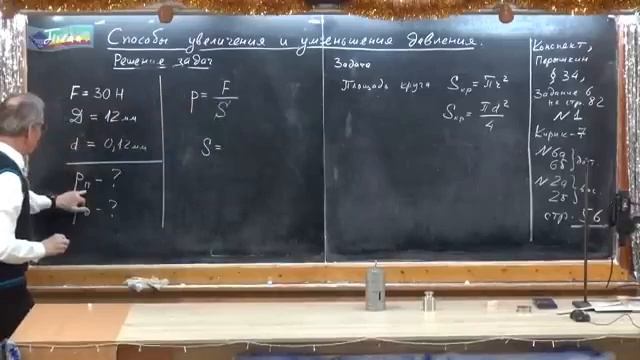 Способы увеличения и уменьшения давления.
Решение задач
F = 30 Н
D = 12 мм
d = 0,12 мм
pп - ?
- ?
p = F/S
S =
Задача
Площадь круга Sкр = πr²
Sкр = πd²/4
Конспект,
Перышкин
§ 34,
Задание 6
на стр. 82
№ 1
Кирик-7
№ 6а
6б
№ 2а
2б
стр. 56